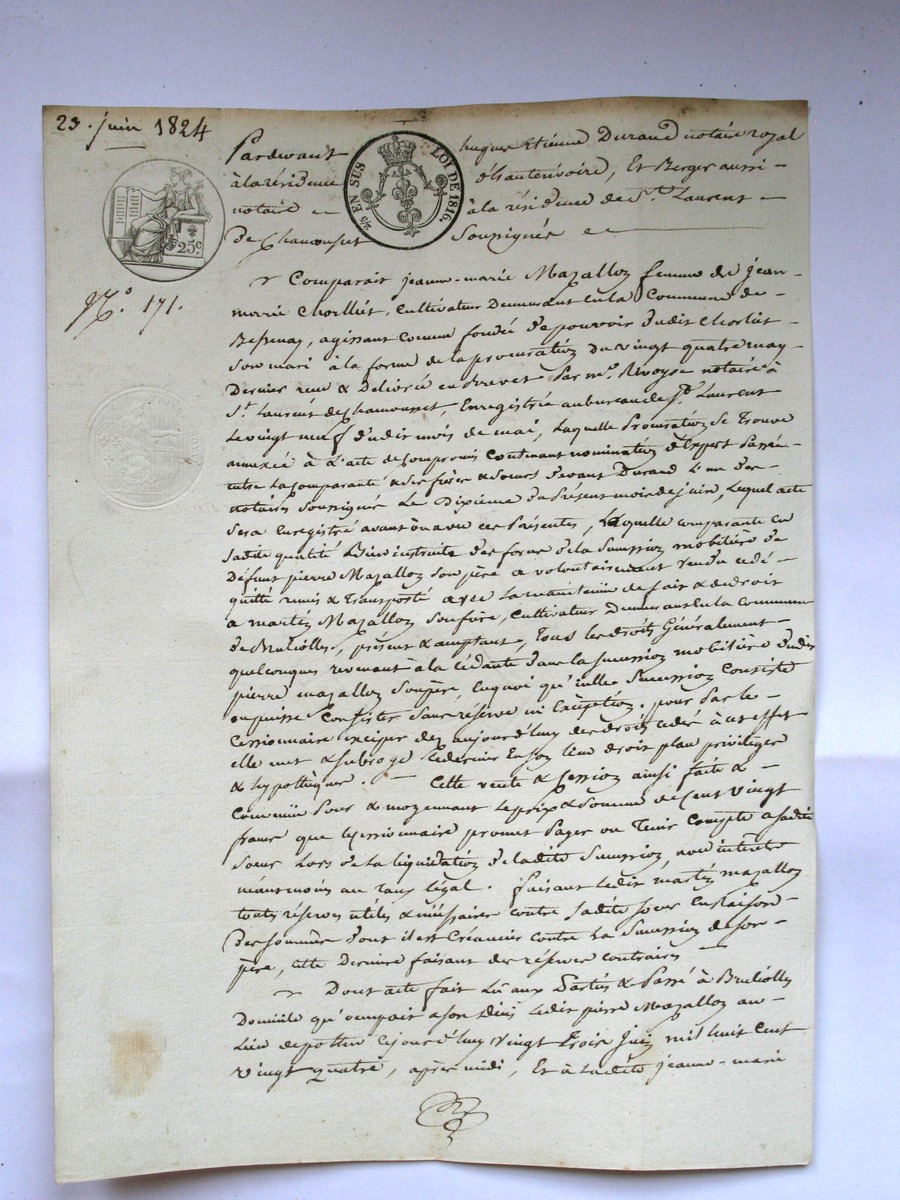 23. juin 1824
Pardevant hugues Etienne Durand notaire royal
à la résidence d'hauterivoire, Et Berger aussi
notaire à la résidence de St. Laurent
de Chamousset Soussignés
25 EN SUS LOI DE 1816.
25c.
No. 171.
Comparait jeanne-marie Mazalloz femme de jean-
marie Chollet, Cultivateur Demeurant En la Commune de
Bessenay, agissant comme fondée de pouvoir dudit Chollet
Son mari à la forme de la procuration du vingt quatre may
Dernier reçue & Délivrée en Brevet Par me. notaire à
St. Laurent de Chamousset, Enregistrée au bureau de St. Laurent
le vingt neuf dudit mois de mai, laquelle Procuration Se trouve
annexée à L'acte de Compromis Contenant nomination d'Expert Passé
entre la Comparante & Ses frères & Sœurs devant Durand L'un des
notaires Soussignés Le Dixième du Présent mois de juin, lequel acte
Sera Enregistré avant ou avec ces Présentes, Laquelle comparante en
Sadite qualité Bien instruite des forces de la Succession mobilière de
Défunt pierre Mazalloz Son père a volontairement vendu cédé
quitté remis & Transporté avec La maintenüe de fait & de droit
à Mazalloz Son frère, Cultivateur Demeurant En la commune
de Brulliolles, présent & acceptant, Tous les droits Généralement
quelconques revenant à la Cédante dans la Succession mobilière dudit
pierre mazalloz Son père, En quoi qu'icelle Succession Consiste
ou puisse Consister Sans réserve ni Exception. pour Par le
Cessionnaire exciper dez aujourd'huy des droits cédés à cet effet
elle met & Subroge Ledernier En Son Lieu droit place privilèges
& hypothèques. Cette vente & Cession ainsi faite &
Convenüe Pour & moyennant Le prix & Somme de Cent Vingt
francs que le Cessionnaire promet Payer ou Tenir Compte a Sadite
Sœur Lors de La liquidation de Ladite Succession, avec intérêts
néanmoins au Taux légal. faisant Ledit mazalloz
toutes réserves utiles & nécessaires contre Sadite Soeur En Raison
Des Sommes dont il est Créancier contre La Succession de Son
père, cette Dernière faisant des réserves contraires
Dont acte fait Lu aux Parties & Passé à Brulliolles
Domicile qu'occupait a Son Décès Ledit pierre Mazalloz au
Lieu de ce jourd'huy Vingt Trois Juin mil huit Cent
vingt quatre, après midi, Et à Ladite jeanne-marie